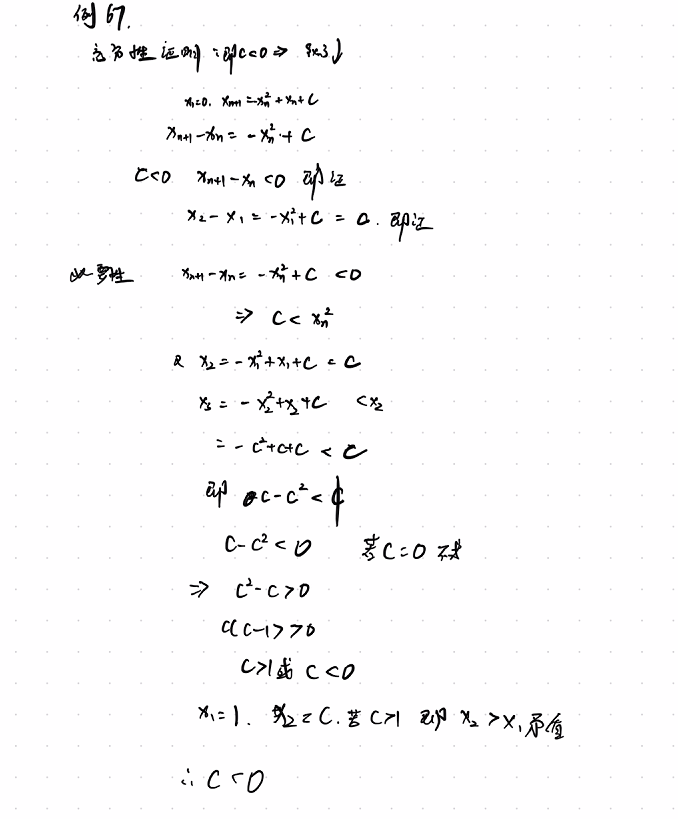 例67.
充分性证明：即C<0 ⇒ {xn}↓
x₁=0. xₙ₊₁=-xₙ²+xₙ+C
xₙ₊₁-xₙ = -xₙ²+C
C<0 xₙ₊₁-xₙ<0 即证
x₂-x₁=-x₁²+C=C. 即证
必要性 xₙ₊₁-xₙ=-xₙ²+C <0
⇒ C<xₙ²
又 x₂=-x₁²+x₁+C=C
x₃=-x₂²+x₂+C <x₂
=-C²+C+C<C
即 C-C²<
C-C²<0 若C=0
⇒ C²-C>0
C(C-1)>0
C>1或C<0
x₁=1. x₂=C.若C>1 即 x₂>x₁矛盾
∴C<0